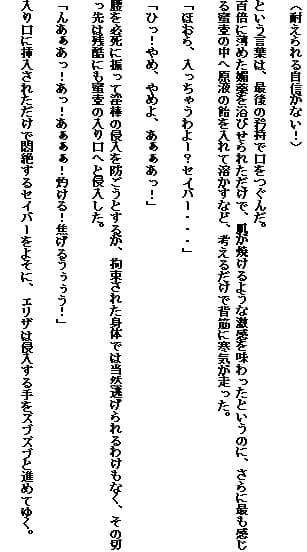 （耐えられる自信がない！）
という言葉は、最後の矜持で口をつぐんだ。
百倍に薄めた媚薬を浴びせられただけで、肌が焼けるような激感を味わったというのに、さらに最も感じ
る蜜壺の中へ原液の飴を入れて溶かすなど、考えるだけで背筋に寒気が走った。
「ほおら、入っちゃうわよー？セイバー・・・」
「ひっ！やめ、やめよ、あぁぁあっ！」
腰を必死に振って淫棒の侵入を防ごうとするが、拘束された身体では当然逃げられるわけもなく、その切
っ先は残酷にも蜜壺の入り口へと侵入した。
「んあぁあっ！あっ！あぁぁぁ！灼ける！焦げるうぅぅう！」
入り口に挿入されただけで悶絶するセイバーをよそに、エリザは侵入する手をズブズブと進めてゆく。